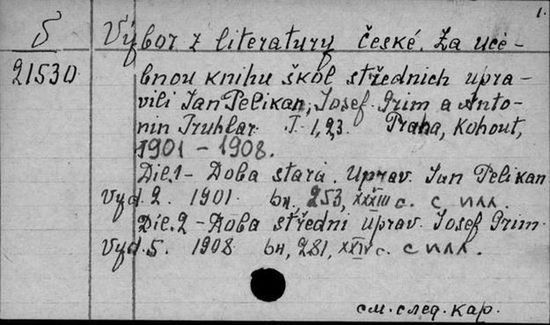 1.
5 Výbor z literatury české. Za uče-
21530 bnou knihu škol středních upra-
vili Jan Pelikan, Josef Grim a Anto-
nin Truhlar. T. 1, 2, 3. Praha, Kohout,
1901 – 1908.
Díl. 1 – Doba stara. Uprav. Jan Pelikan
Vyd. 2. 1901. bн, 253, XXXIII с. с илл.
Díl. 2 – Doba středni uprav. Josef Grim.
Vyd. 5. 1908 bн, 281, XXIV с. с илл.
см. след. кар.